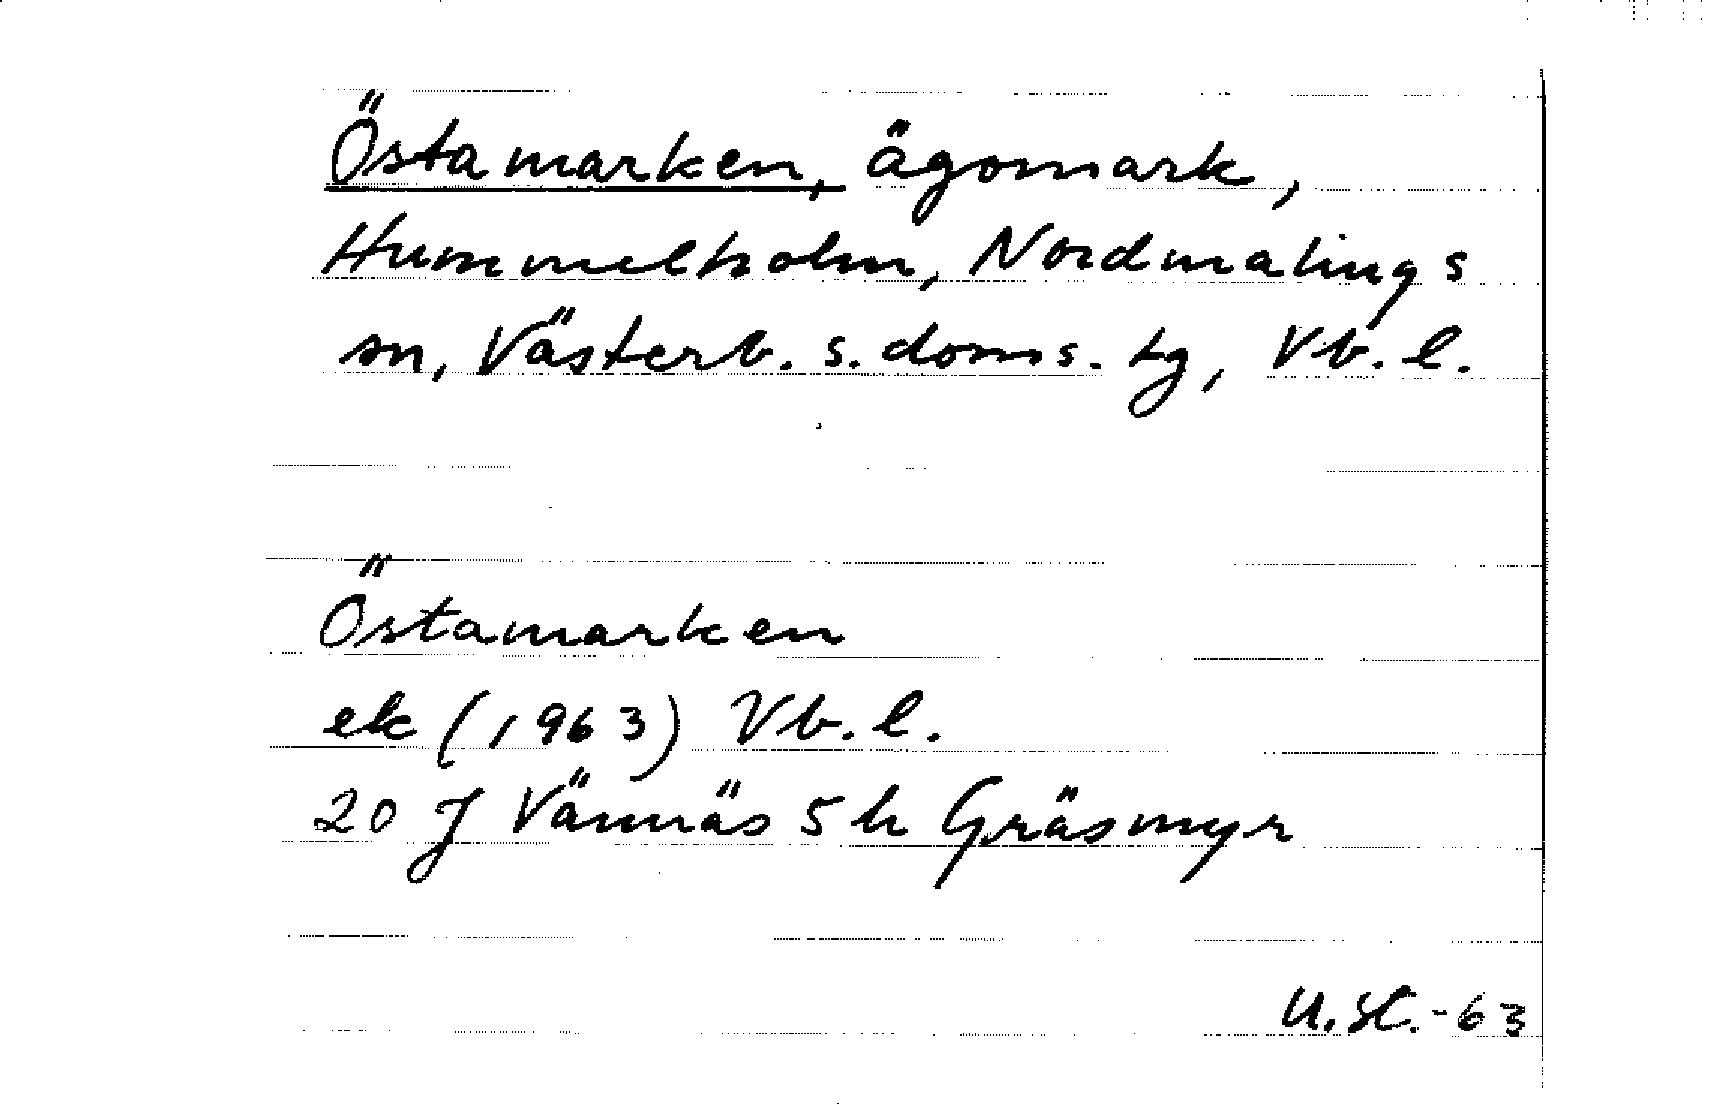 Östamarken, ägomark,
Hummelholm, Nordmalings
sn, Västerb. s. doms. tg, Vb. l.
Östamarken
ek (1963) Vb. l.
20 J Vännäs 5 h Gräsmyr
U. H. -63